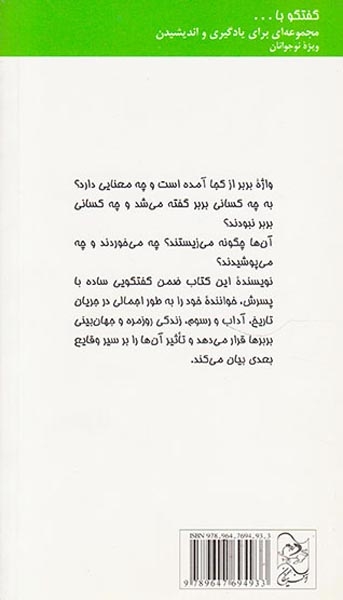 گفتگو با ...
مجموعه‌ای برای یادگیری و اندیشیدن
ویژهٔ نوجوانان
واژهٔ بربر از کجا آمده است و چه معنایی دارد؟
به چه کسانی بربر گفته می‌شد و چه کسانی
بربر نبودند؟
آن‌ها چگونه می‌زیستند؟ چه می‌خوردند و چه
می‌پوشیدند؟
نویسندهٔ این کتاب ضمن گفتگویی ساده با
پسرش، خوانندهٔ خود را به طور اجمالی در جریان
تاریخ، آداب و رسوم، زندگی روزمره و جهان‌بینی
بربرها قرار می‌دهد و تأثیر آن‌ها را بر سیر وقایع
بعدی بیان می‌کند.
ISBN 978_964_7694_93_3
9789647694933